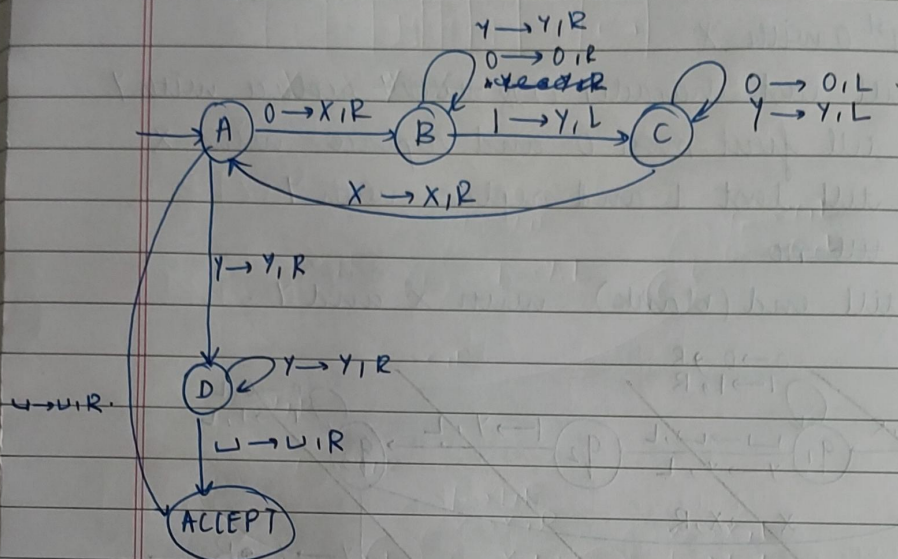 Y → Y, R
0 → 0, R
0 → 0, L
Y → Y, L
A
0 → X, R
B
1 → Y, L
C
X → X, R
Y → Y, R
D
Y → Y, R
⊔ → ⊔, R
⊔ → ⊔, R
ACCEPT